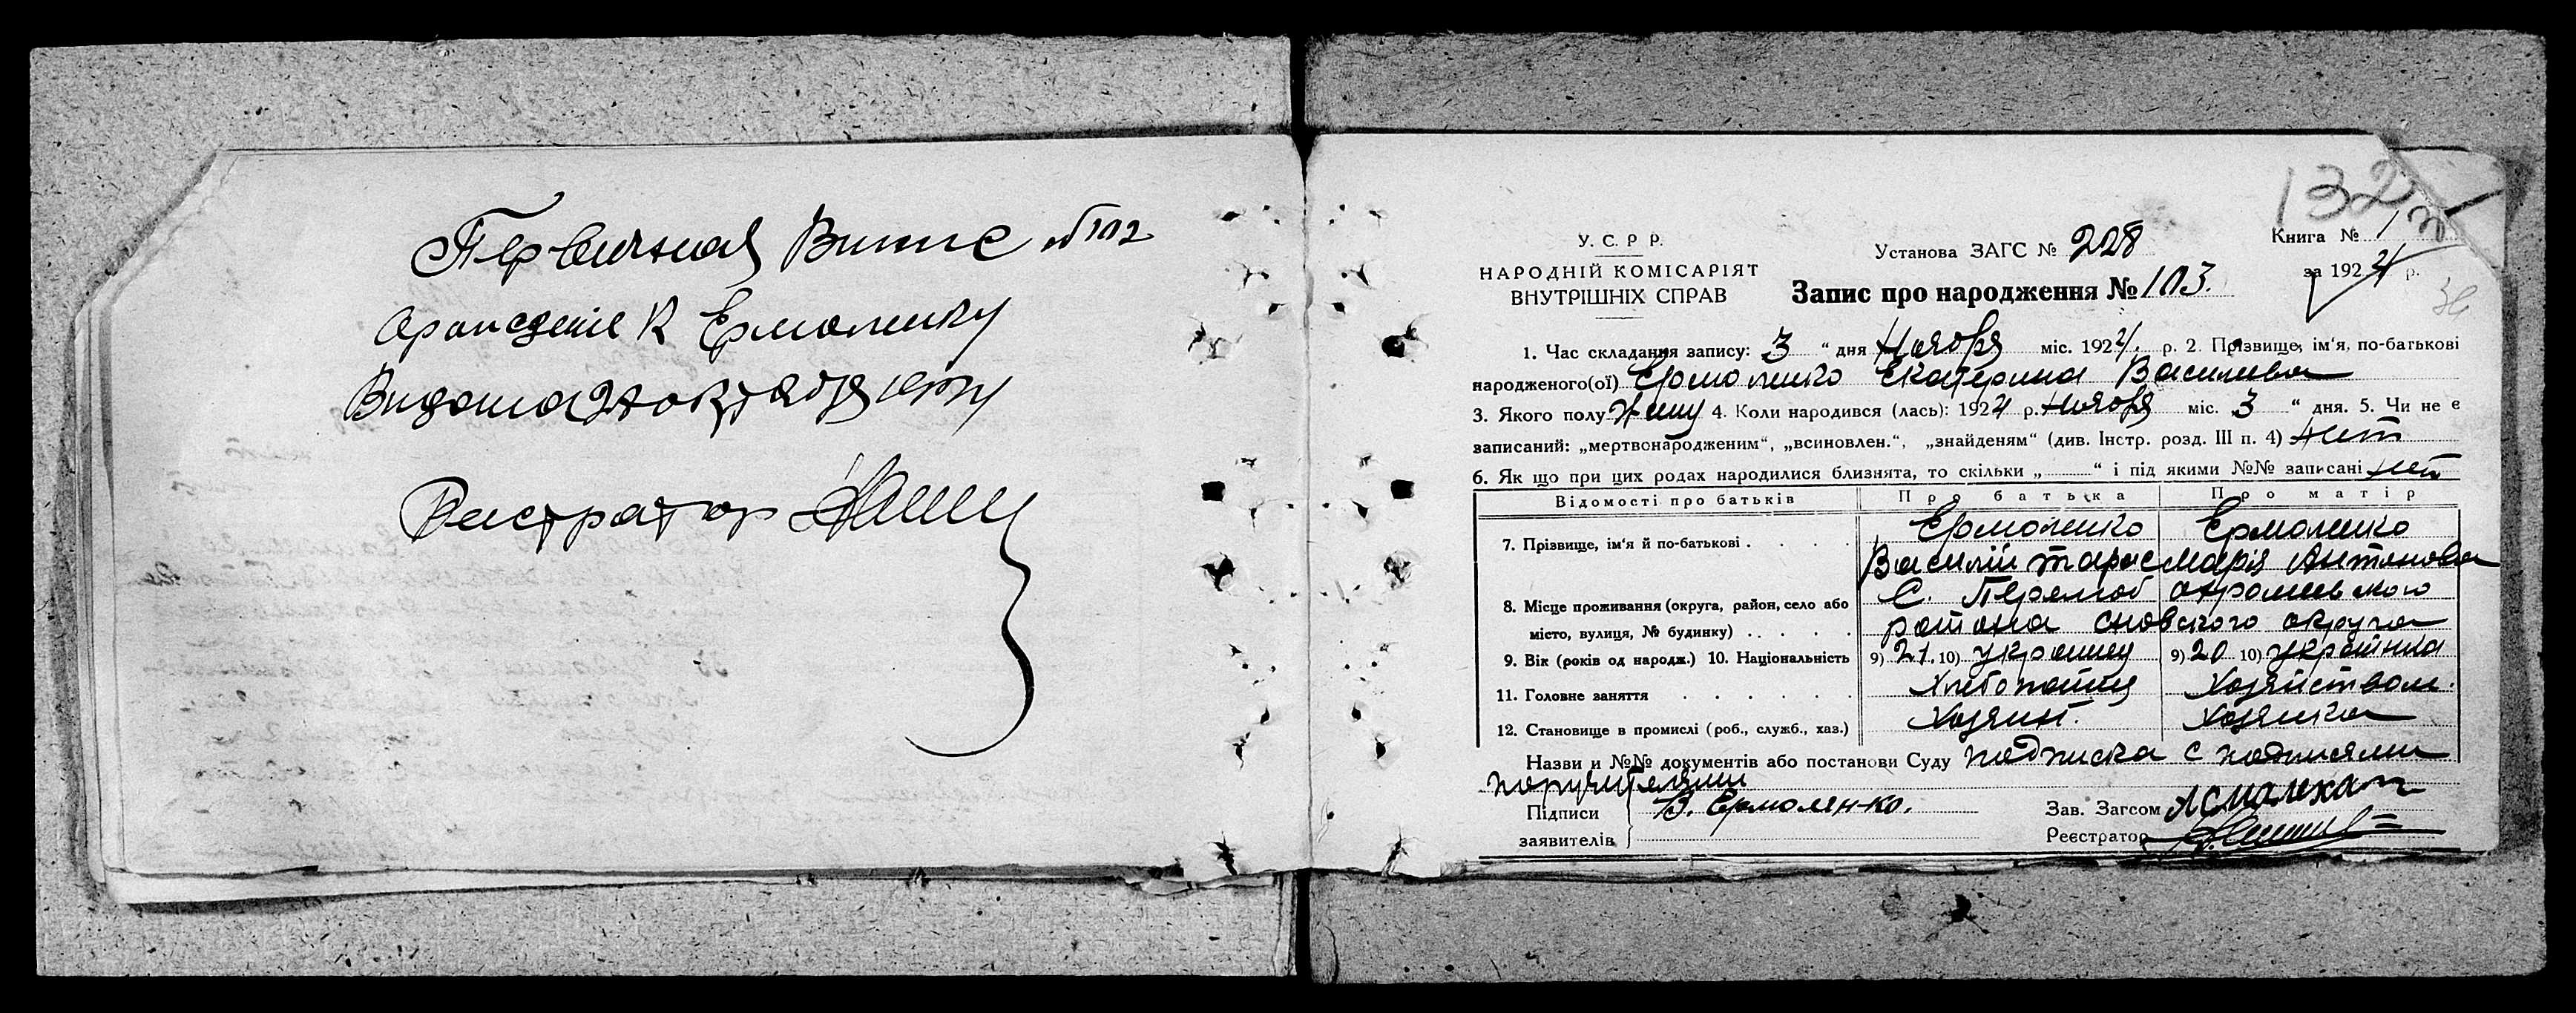 Первичная Выпис №102
о рождение К Ермоленку
Видана 2 октября
Регистратор
132
У. С. Р. Р.
НАРОДНІЙ КОМІСАРІЯТ
ВНУТРІШНІХ СПРАВ
Установа ЗАГС № 228
Запис про народження № 103.
Книга № 1
за 1924 р.
1. Час складання запису: 3 “ дня Ноября міс. 1924. р. 2. Прізвище, ім‘я, по-батькові
народженого(ої) Ермоленко Екатерина Васильева
3. Якого полу жену 4. Коли народився (лась): 1924 р. Ноября міс. 3 “ дня. 5. Чи не є
записаний: „мертвонародженим“, „всиновлен.“, „знайденям“ (див. Інстр. розд. III п. 4) нет
6. Як що при цих родах народилися близнята, то скільки „ “ і під якими №№ записані нет
Відомості про батьків Про батька Про матір
7. Прізвище, ім‘я й по-батькові . . . . Ермоленко Ермоленко
Василий Тарас Мария Антонова
8. Місце проживання (округа, район, село або С. Перелюб
місто, вулиця, № будинку) . . . . района Сновского округа
9. Вік (років од народж.) 10. Національність 9) 21. 10) украинец 9) 20 10) украинка
11. Головне заняття . . . . . Хлебопашец Хозяйством.
12. Становище в промислі (роб., служб., хаз.) Хозяин. Хозяйка
Назви и №№ документів або постанови Суду подписка с подписями
поручителями
Підписи В. Ермоленко. Зав. Загсом
заявителів Реєстратор